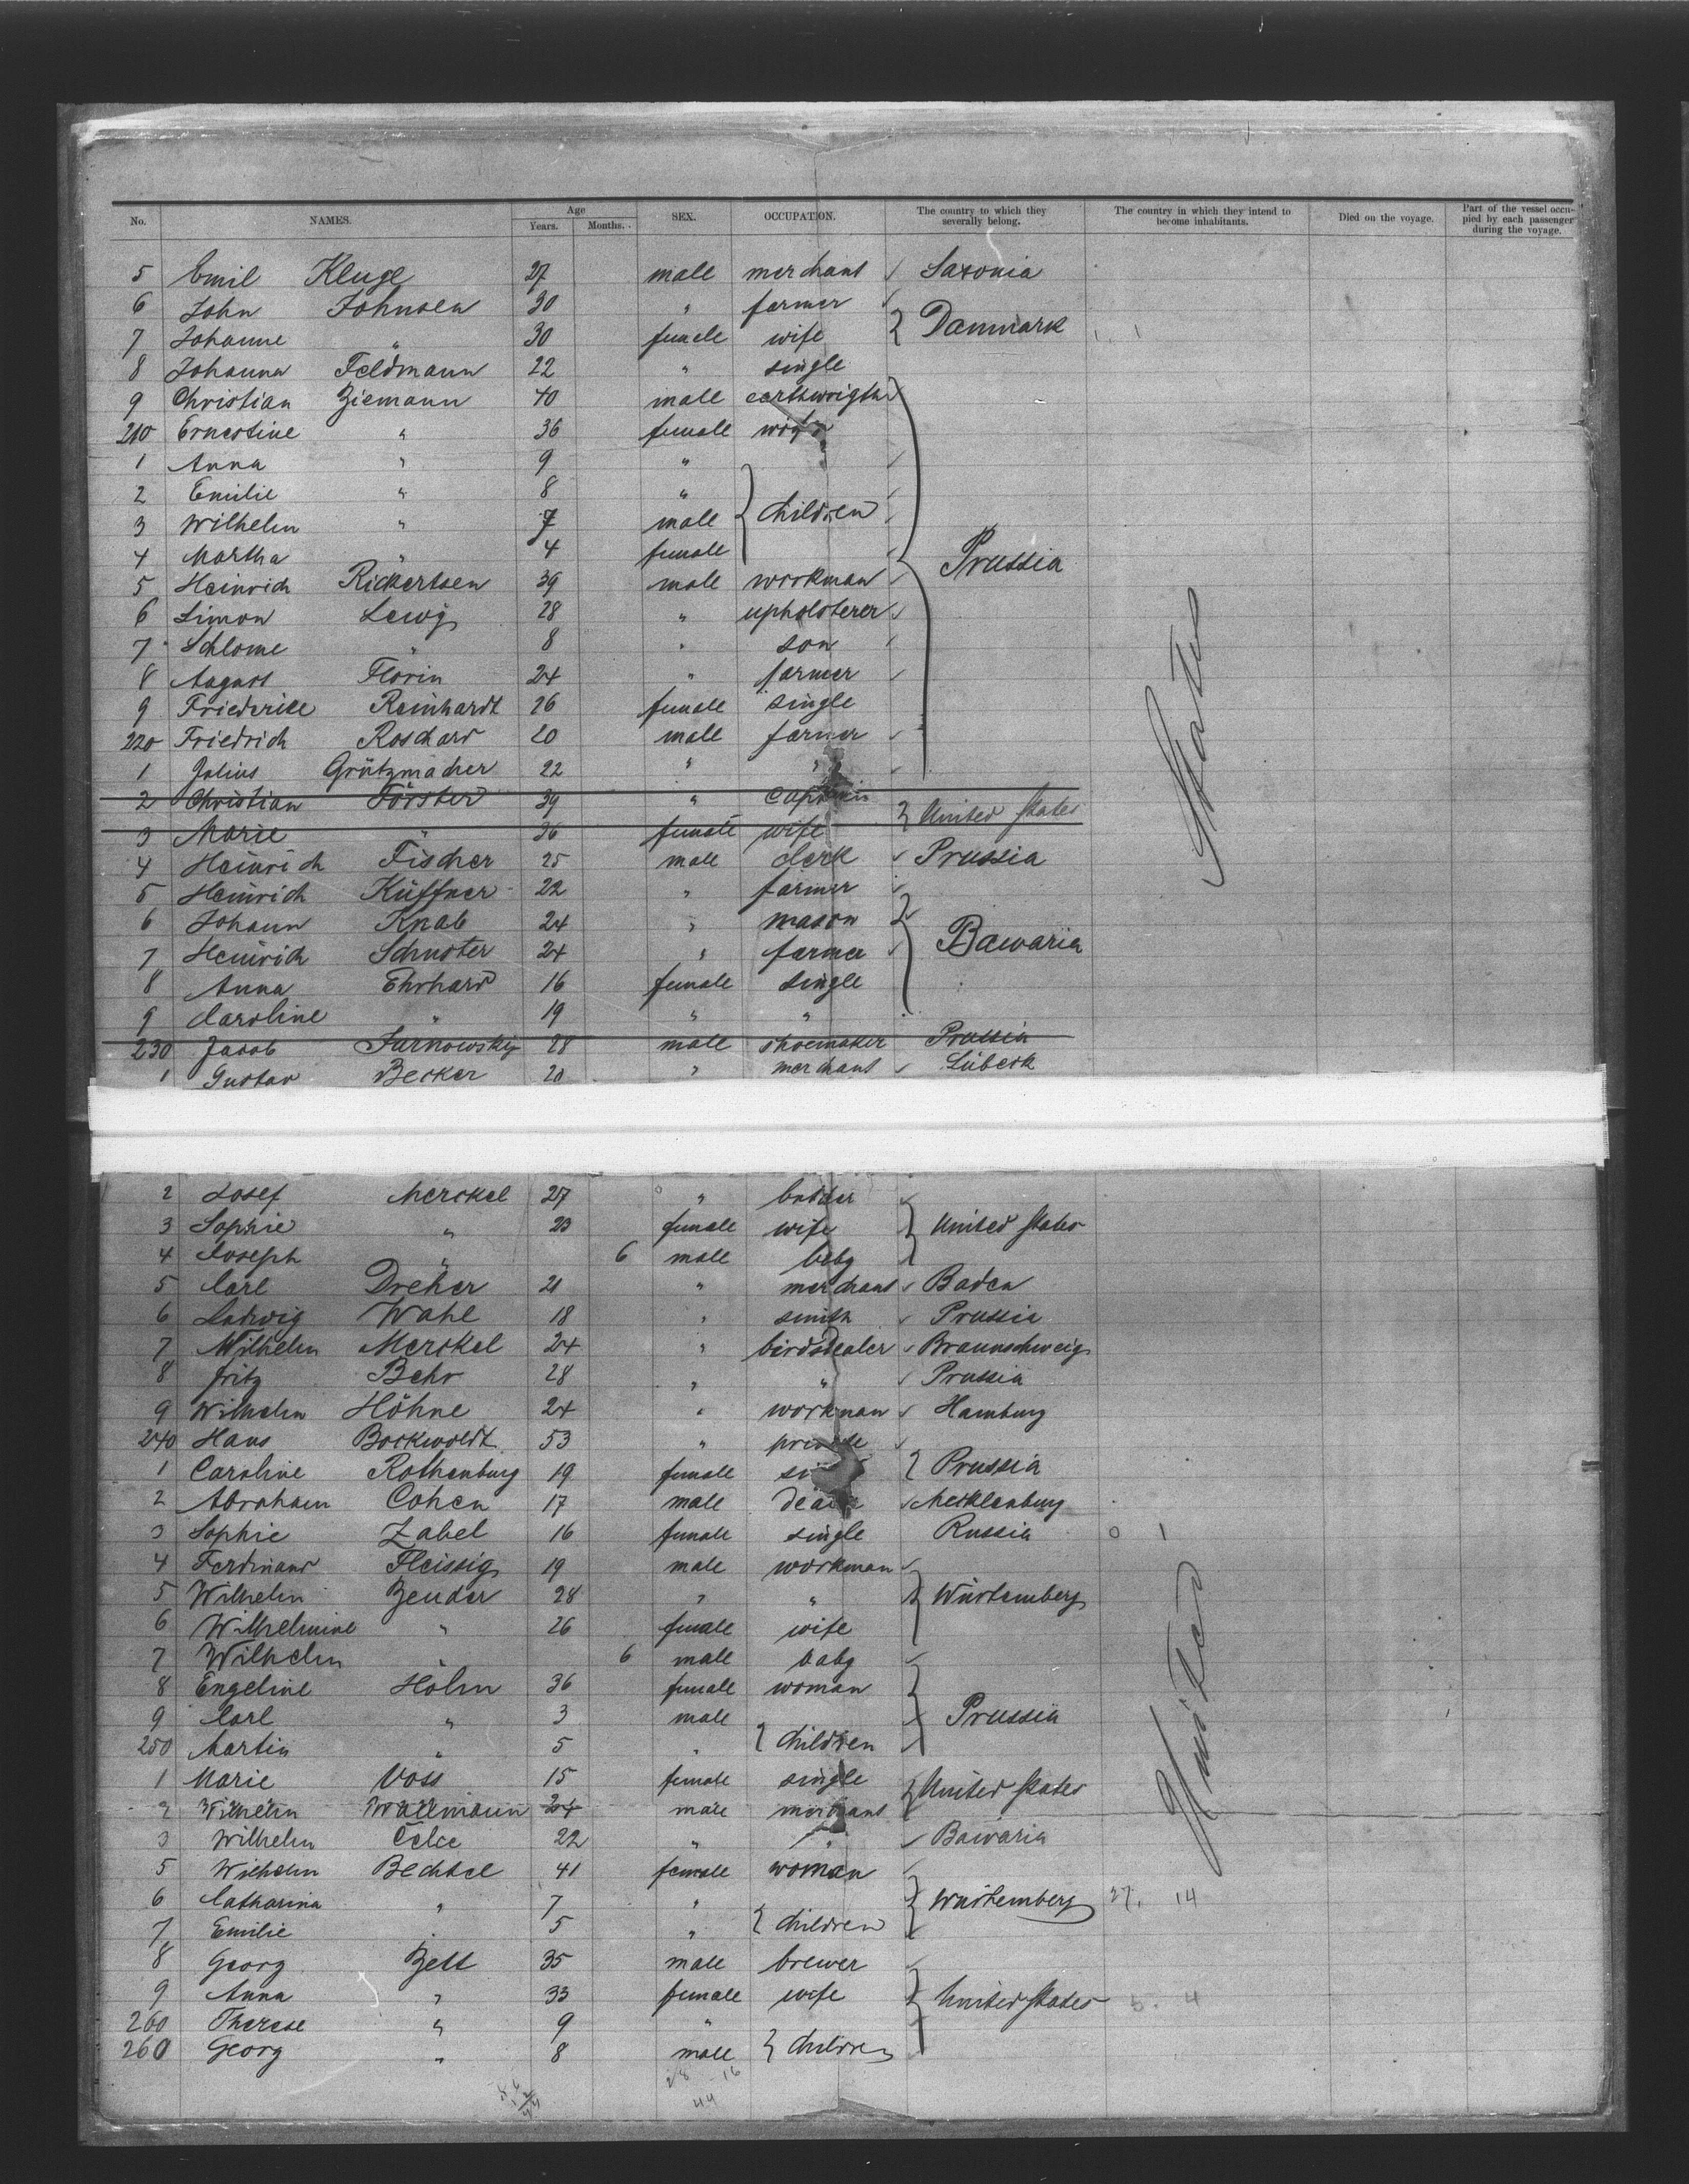 No. NAMES. Age Years. Months. SEX. OCCUPATION. The country to which they severally belong. The country in which they intend to become inhabitants. Died on the voyage. Part of the vessel occupied by each passenger during the voyage.
5 Emil Kluge 27 male merchant Saxonia
6 John Johnsen 30 " farmer
7 Johanne " 30 female wife Danmark
8 Johanna Feldmann 22 " single
9 Christian Ziemann 40 male cartwrigth
210 Ernestine " 36 female wife
1 Anna " 9 "
2 Emilie " 8 "
3 Wilhelm " 7 male children
4 Martha " 4 female
5 Heinrich Rickertsen 39 male workman Prussia
6 Simon Lewy 28 " upholsterer
7 Schlome " 8 " son
8 August Florin 24 " farmer
9 Friederike Reinhardt 26 female single
220 Friedrich Roschard 20 male farmer
1 Julius Grützmacher 22 " "
2 Christian Förster 39 " captain
3 Marie " 36 female wife United States
4 Heinrich Fischer 25 male clerk Prussia
5 Heinrich Küffner 22 " farmer
6 Johann Knab 24 " mason
7 Heinrich Schuster 24 " farmer Bawaria
8 Anna Ehrhard 16 female single
9 Caroline " 19 " "
230 Jacob Jurnowsky 28 male shoemaker Prussia
1 Gustav Becker 20 " merchant Lübeck
2 Josef Merckel 27 "
3 Sophie " 23 female wife United States
4 Joseph " 6 male baby
5 Carl Dreher 21 " merchant Baden
6 Ludwig Wahl 18 " smith Prussia
7 Wilhelm Merckel 24 " birdsdealer Braunschweig
8 Fritz Behr 28 " " Prussia
9 Wilhelm Höhne 24 " workman Hamburg
240 Hans Bockwoldt 53 " private
1 Caroline Rothenburg 19 female Prussia
2 Abraham Cohen 17 male Mecklenburg
3 Sophie Zabel 16 female single Russia 0 1
4 Ferdinand Fleissig 19 male workman
5 Wilhelm Zender 28 " " Würtemberg
6 Wilhelmine " 26 female wife
7 Wilhelm " 6 male baby
8 Engeline Holm 36 female woman
9 Carl " 3 male Prussia
250 Martin " 5 " children
1 Marie Voss 15 female single United States
2 Wilhelm Wallmann 24 male merchant
3 Wilhelm 22 " " Bawaria
5 Wilhelm Bechtel 41 female woman
6 Catharina " 7 " Würtemberg 27. 14
7 Emilie " 5 " children
8 Georg Zett 35 male brewer
9 Anna " 33 female wife United States 5. 4
260 Therese " 9 "
260 Georg " 8 male children
United States
28 16
44